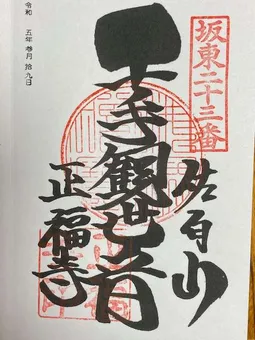 坂東二十三番
佐白山
千手觀世音
正福寺
令和 五年 参月 拾九日